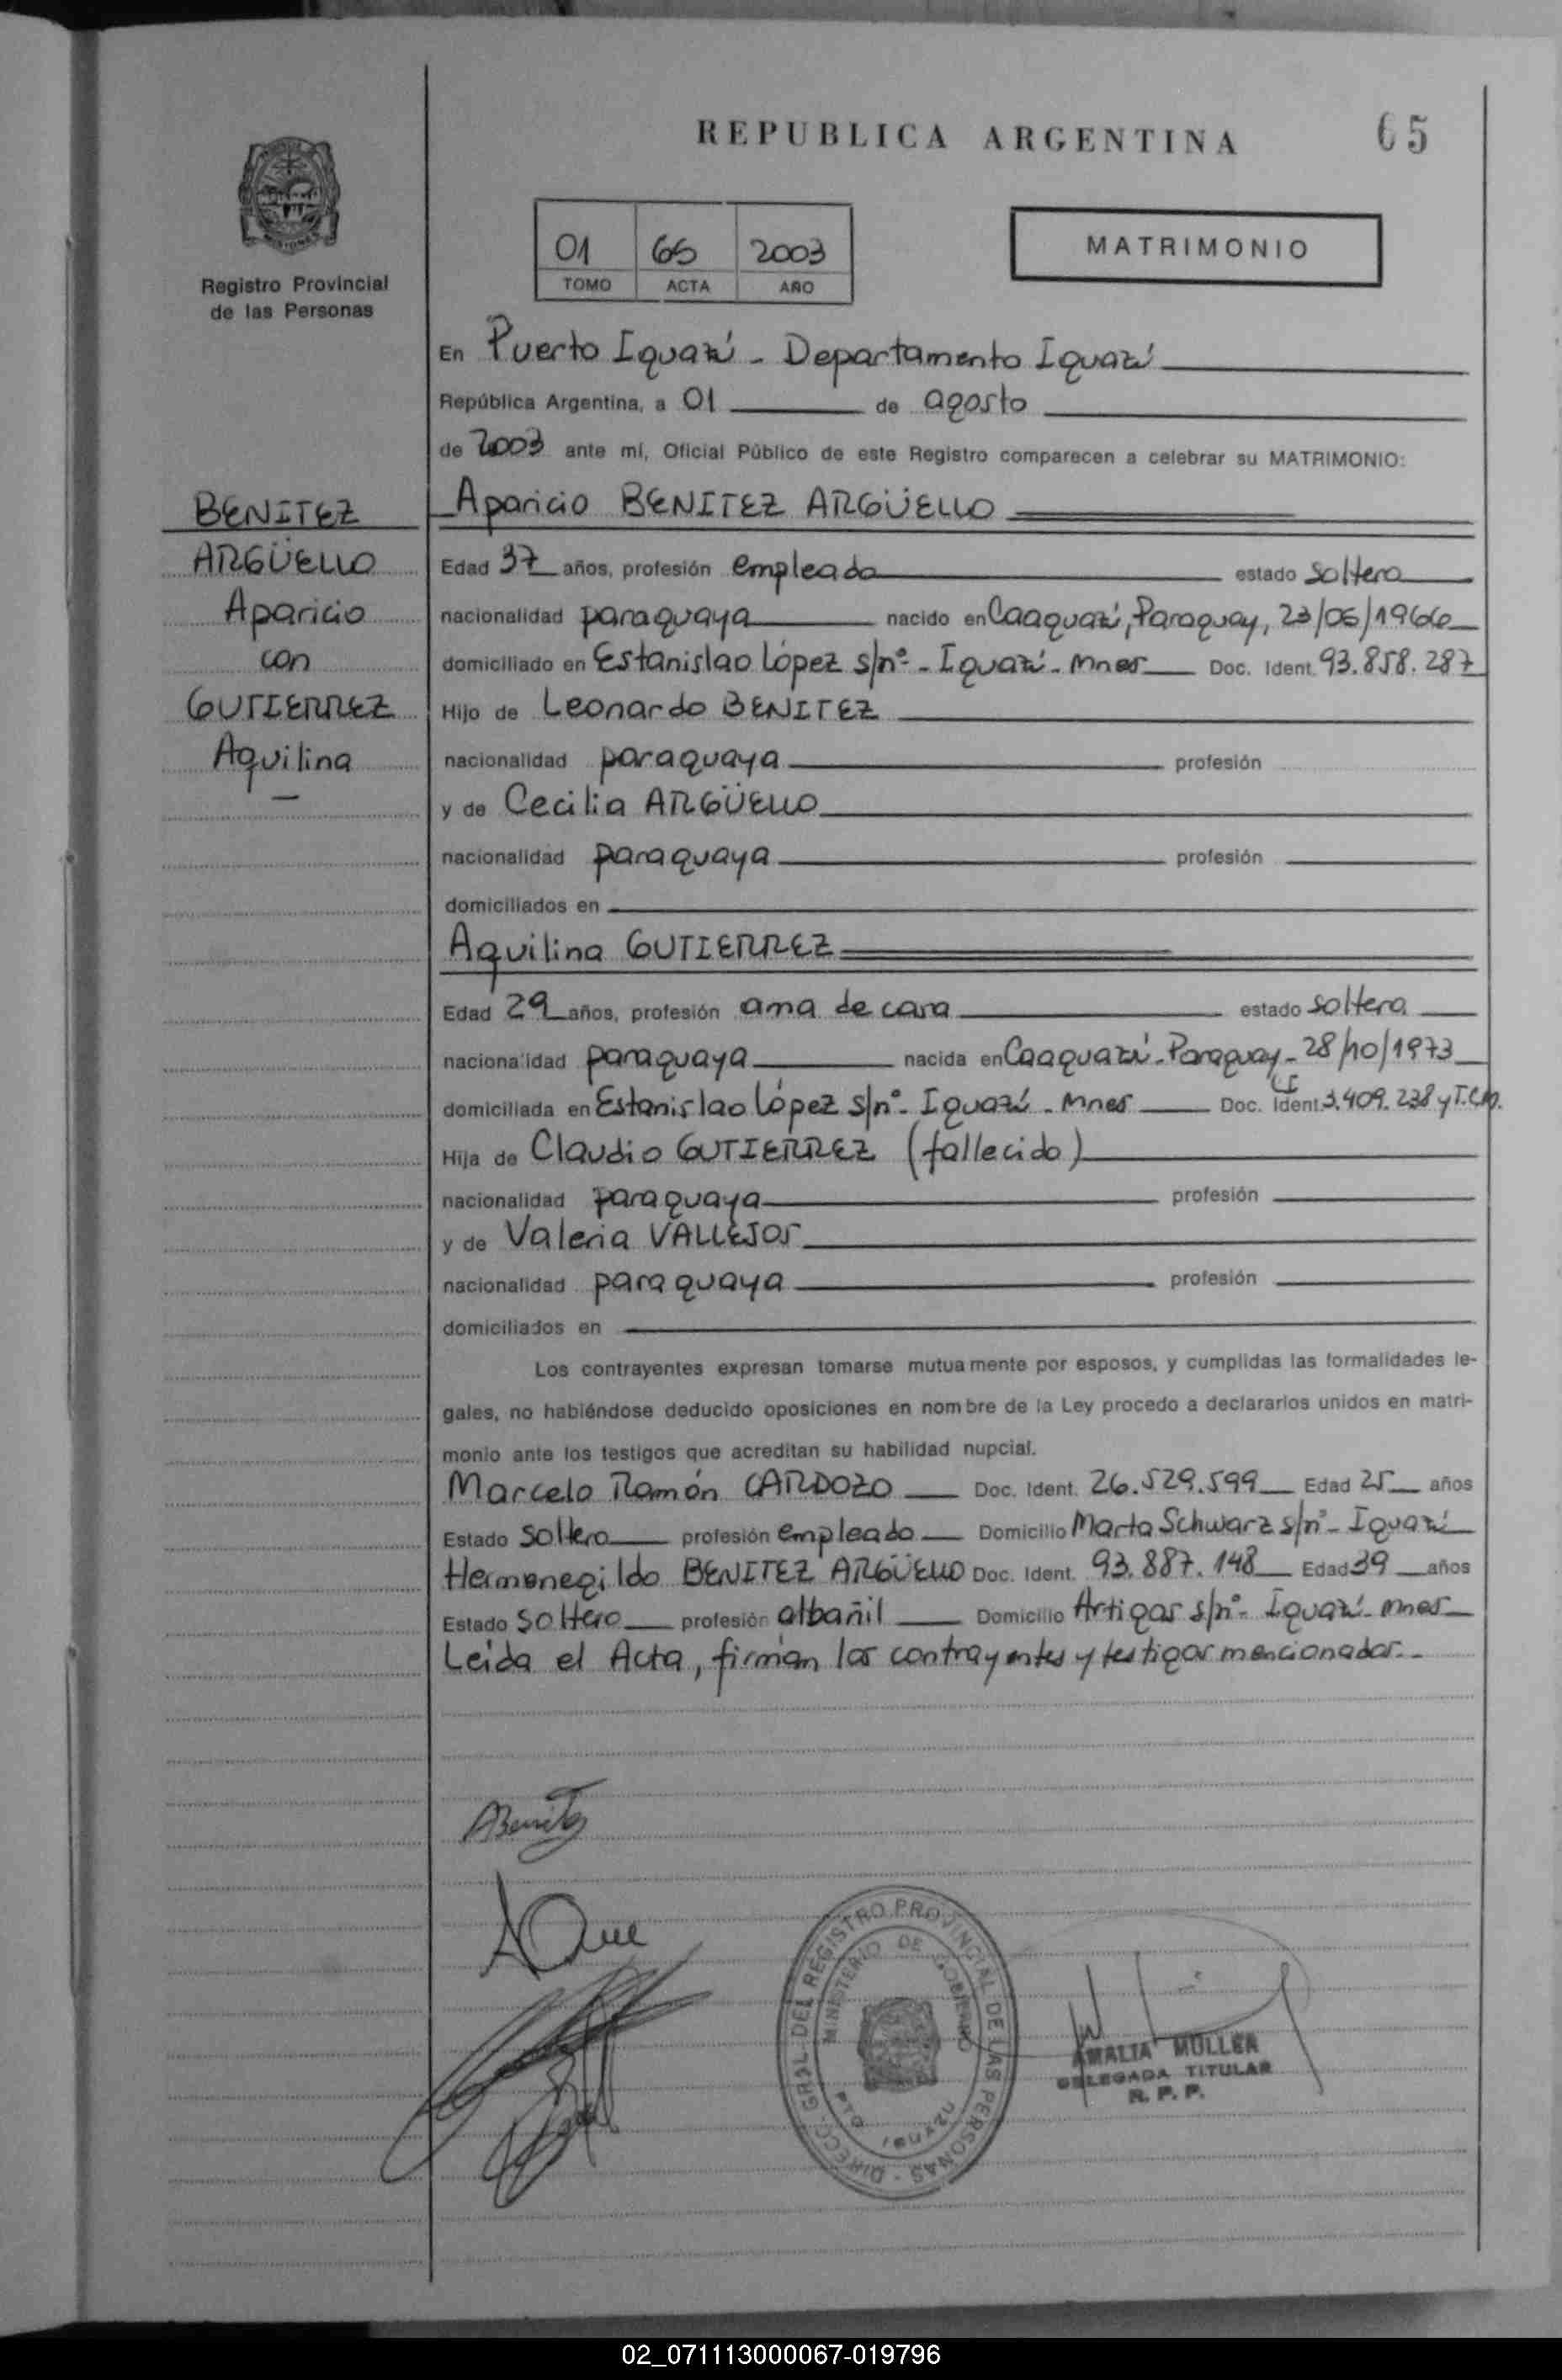 REPUBLICA ARGENTINA
65
Registro Provincial
de las Personas
01 65 2003
TOMO ACTA AÑO
MATRIMONIO
En Puerto Iguazú - Departamento Iguazú
República Argentina, a 01 de agosto
de 2003 ante mí, Oficial Público de este Registro comparecen a celebrar su MATRIMONIO:
BENITEZ
ARGÜELLO
Aparicio
con
GUTIERREZ
Aquilina
Aparicio BENITEZ ARGÜELLO
Edad 37 años, profesión empleado estado soltero
nacionalidad paraguaya nacido en Caaguazú, Paraguay, 23/06/1966
domiciliado en Estanislao López s/nº - Iguazú - Mnes Doc. Ident. 93.858.287
Hijo de Leonardo BENITEZ
nacionalidad paraguaya profesión
y de Cecilia ARGÜELLO
nacionalidad paraguaya profesión
domiciliados en
Aquilina GUTIERREZ
Edad 29 años, profesión ama de casa estado soltera
nacionalidad paraguaya nacida en Caaguazú - Paraguay - 28/10/1973
domiciliada en Estanislao López s/nº - Iguazú - Mnes Doc. Ident. CI 3.409.238 y T.C.M.
Hija de Claudio GUTIERREZ (fallecido)
nacionalidad paraguaya profesión
y de Valeria VALLEJOS
nacionalidad paraguaya profesión
domiciliados en
Los contrayentes expresan tomarse mutuamente por esposos, y cumplidas las formalidades le-
gales, no habiéndose deducido oposiciones en nombre de la Ley procedo a declararlos unidos en matri-
monio ante los testigos que acreditan su habilidad nupcial.
Marcelo Ramón CARDOZO Doc. Ident. 26.529.599 Edad 25 años
Estado soltero profesión empleado Domicilio Marta Schwarz s/nº - Iguazú
Hermenegildo BENITEZ ARGÜELLO Doc. Ident. 93.887.148 Edad 39 años
Estado soltero profesión albañil Domicilio Artigas s/nº - Iguazú - Mnes
Leída el Acta, firman los contrayentes y testigos mencionados.-
ABenitez
DIRECC. GRAL. DEL REGISTRO PROVINCIAL DE LAS PERSONAS
MINISTERIO DE GOBIERNO
PTO IGUAZU
AMALIA MULLER
DELEGADA TITULAR
R. P. P.
02_071113000067-019796